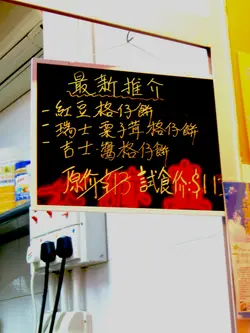 最新推介
-紅豆格仔餅
-瑞士栗子茸格仔餅
-吉士醬格仔餅
原价$13 試食价:$11